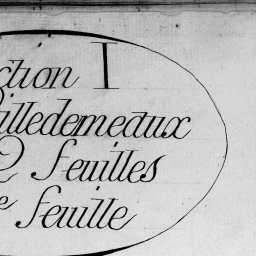 ction I
illedemeaux
2 feuilles
e feuille